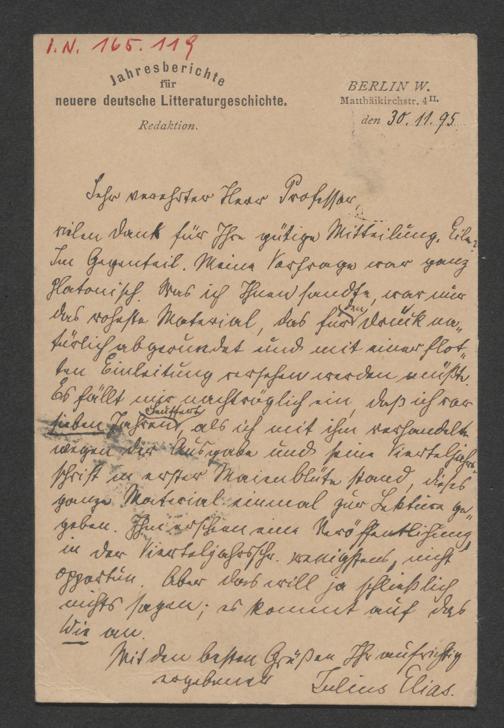 I.N. 165.119
Jahresberichte
für
neuere deutsche Litteraturgeschichte.
Redaktion.
BERLIN W.
Matthäikirchstr. 4 II.
den 30.11.95
Sehr verehrter Herr Professor,
vielen Dank für Ihre gütige Mitteilung. Eile?
Im Gegenteil. Meine Vorfrage war ganz
platonisch. Was ich Ihnen sandte, war nur
das roheste Material, das für den Druck na-
türlich abgerundet und mit einer flot-
ten Einleitung versehen werden müßte.
Es fällt mir nachträglich ein, daß ich vor
sieben Jahren Seuffert, als ich mit ihm verhandelte
wegen der Ausgabe und seine Vierteljahr-
schrift in erster Maienblüte stand, dieses
ganze Material einmal zur Lektüre ge-
geben. Ihm erschien eine Veröffentlichung
in der Vierteljahrsschr. wenigstens, nicht
opportun. Aber das will ja schließlich
nichts sagen; es kommt auf das
Wie an.
Mit den besten Grüßen Ihr aufrichtig
ergebener Julius Elias.